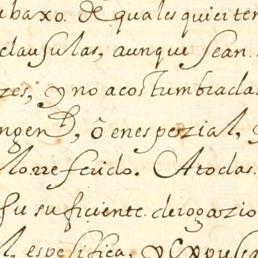 abaxo. De qualesquier ten
clausulas, aunque sean.
zes, y no acostumbradas
ingen^l, ô en espezial, y
lo rreferido. A todas.
su suficiente derogazio
espesifica, y expresa